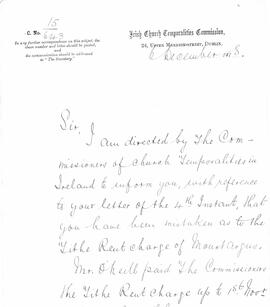 15
C. No. 643
Irish Church Temporalities Commission,
24, Upper Merrion-street, Dublin,
In any further correspondence on this subject, the
above number and letter should be quoted, and
the communication should be addressed
to "The Secretary."
6 December 78.
Sir,
I am directed by The Com-
missioners of Church Temporalities in
Ireland to inform you, with reference
to your letter of the 4th Instant, that
you have been mistaken as to the
Tithe Rent charge of Mountargus.
Mr. O'Neill paid The Commissioners
the Tithe Rent charge up to 1st Novr